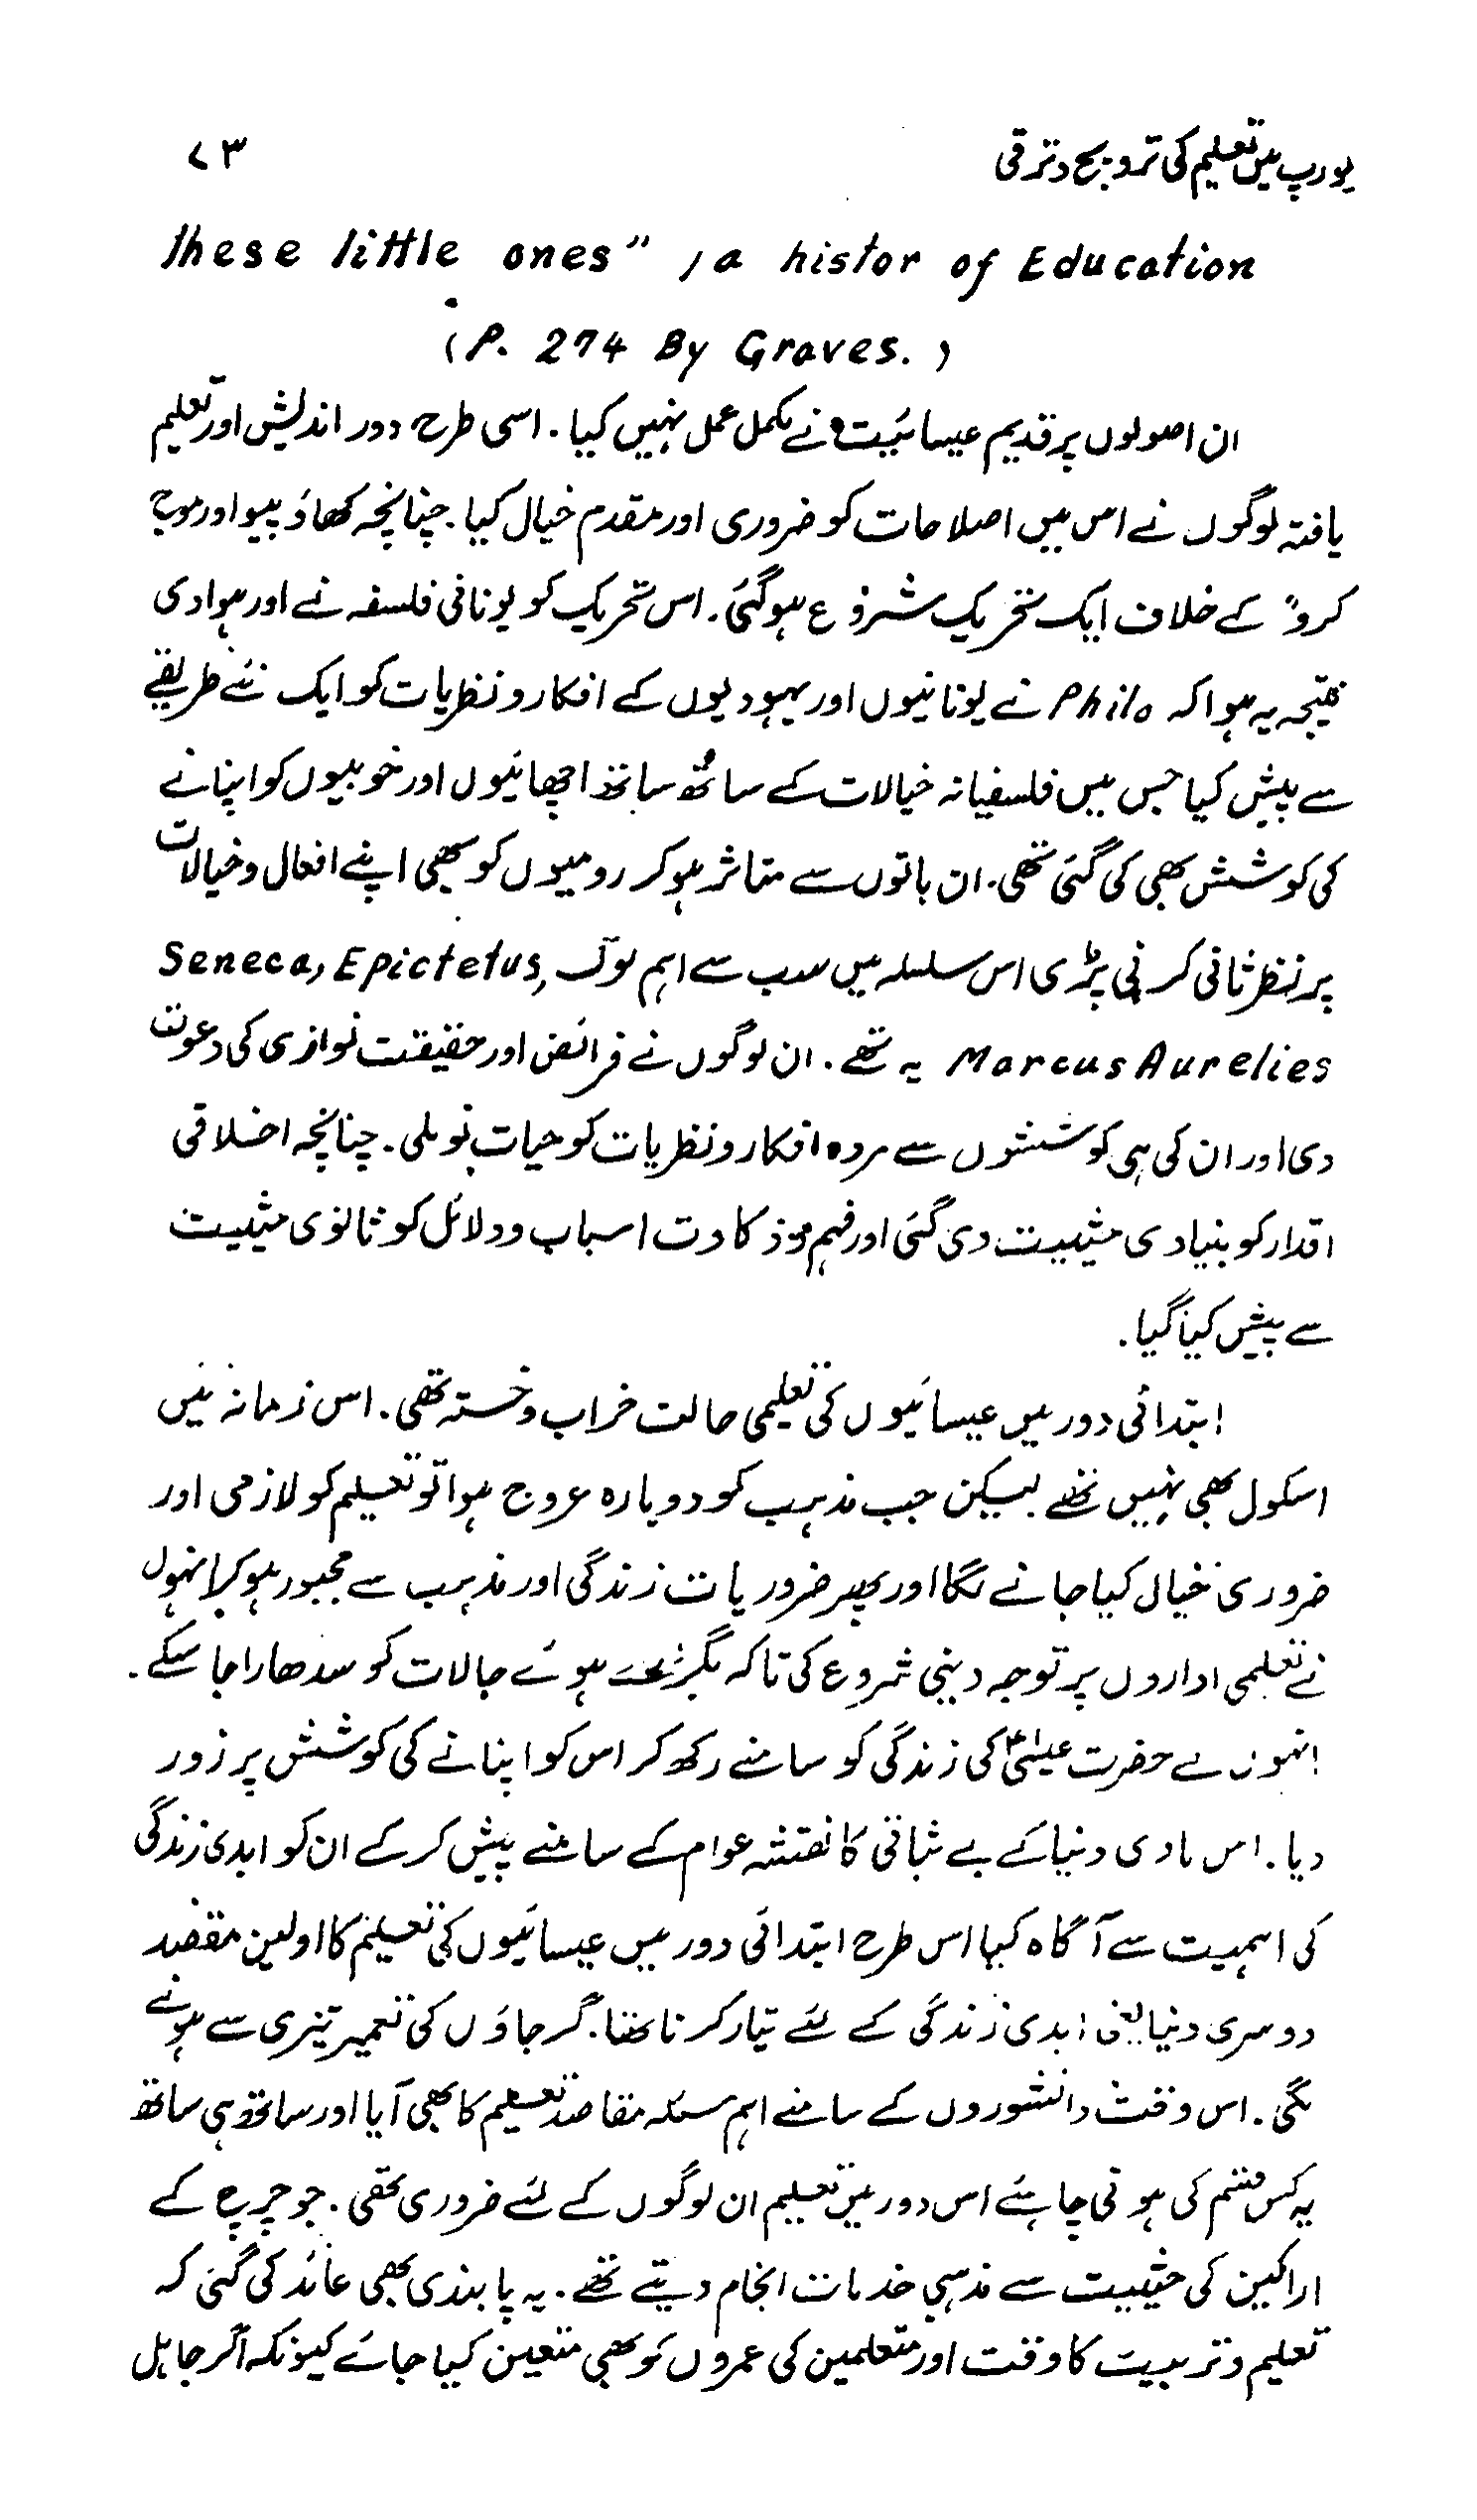 یورپ میں تعلیم کی ترویج و ترقی ۷۳
these little ones" , a histor of Education
(P. 274 By Graves.)
ان اصولوں پر قدیم عیسائیت نے مکمل عمل نہیں کیا۔ اسی طرح دور اندیش اور تعلیم
یافتہ لوگوں نے اس میں اصلاحات کو ضروری اور مقدم خیال کیا۔ چنانچہ کھاؤ پیو اور موج
کرو" کے خلاف ایک تحریک شروع ہوگئی۔ اس تحریک کو یونانی فلسفہ نے اور ہوا دی
نتیجہ یہ ہوا کہ Philo نے یونانیوں اور یہودیوں کے افکار و نظریات کو ایک نئے طریقے
سے پیش کیا جس میں فلسفیانہ خیالات کے ساتھ ساتھ اچھائیوں اور خوبیوں کو اپنانے
کی کوشش بھی کی گئی تھی۔ ان باتوں سے متاثر ہوکر رومیوں کو بھی اپنے افعال و خیالات
پر نظر ثانی کرنی پڑی اس سلسلہ میں سب سے اہم لوگ Seneca, Epictetus,
Marcus Aurelies یہ تھے۔ ان لوگوں نے فرائض اور حقیقت نوازی کی دعوت
دی اور ان کی ہی کوششوں سے مردہ افکار و نظریات کو حیات نو ملی۔ چنانچہ اخلاقی
اقدار کو بنیادی حیثیت دی گئی اور فہم و ذکاوت اسباب و دلائل کو ثانوی حیثیت
سے پیش کیا گیا۔
ابتدائی دور میں عیسائیوں کی تعلیمی حالت خراب و خستہ تھی۔ اس زمانہ میں
اسکول بھی نہیں تھے لیکن جب مذہب کو دوبارہ عروج ہوا تو تعلیم کو لازمی اور
ضروری خیال کیا جانے لگا اور پھر ضروریات زندگی اور مذہب سے مجبور ہو کر انہوں
نے تعلمی اداروں پر توجہ دینی شروع کی تاکہ بگڑے ہوئے حالات کو سدھارا جا سکے۔
انہوں نے حضرت عیسیٰؑ کی زندگی کو سامنے رکھ کر اس کو اپنانے کی کوشش پر زور
دیا۔ اس مادی دنیا کے بے ثباتی کا نقشہ عوام کے سامنے پیش کر کے ان کو ابدی زندگی
کی اہمیت سے آگاہ کیا اس طرح ابتدائی دور میں عیسائیوں کی تعلیم کا اولین مقصد
دوسری دنیا یعنی ابدی زندگی کے لئے تیار کرنا تھا۔ گرجاؤں کی تعمیر تیزی سے ہونے
لگی۔ اس وقت دانشوروں کے سامنے اہم مسئلہ مقاصد تعلیم کا بھی آیا اور ساتھ ہی ساتھ
یہ کس قسم کی ہونی چاہئے اس دور میں تعلیم ان لوگوں کے لئے ضروری تھی۔ جو چرچ کے
اراکین کی حیثیت سے مذہبی خدمات انجام دیتے تھے۔ یہ پابندی بھی عائد کی گئی کہ
تعلیم و تربیت کا وقت اور متعلمین کی عمروں کو بھی متعین کیا جائے کیونکہ اگر جاہل